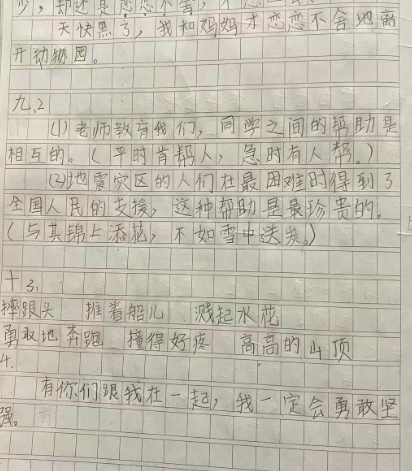 天快黑了，我和妈妈才恋恋不舍地离
开动物园。
九、2
(1)老师教育我们，同学之间的帮助是
相互的。(平时肯帮人，急时有人帮。)
(2)地震灾区的人们在最困难时得到了
全国人民的支援，这种帮助是最珍贵的。
(与其锦上添花，不如雪中送炭。)
十3.
摔跟头 推着船儿 溅起水花
勇敢地奔跑 撞得好疼 高高的山顶
4.
有你们跟我在一起，我一定会勇敢坚
强。